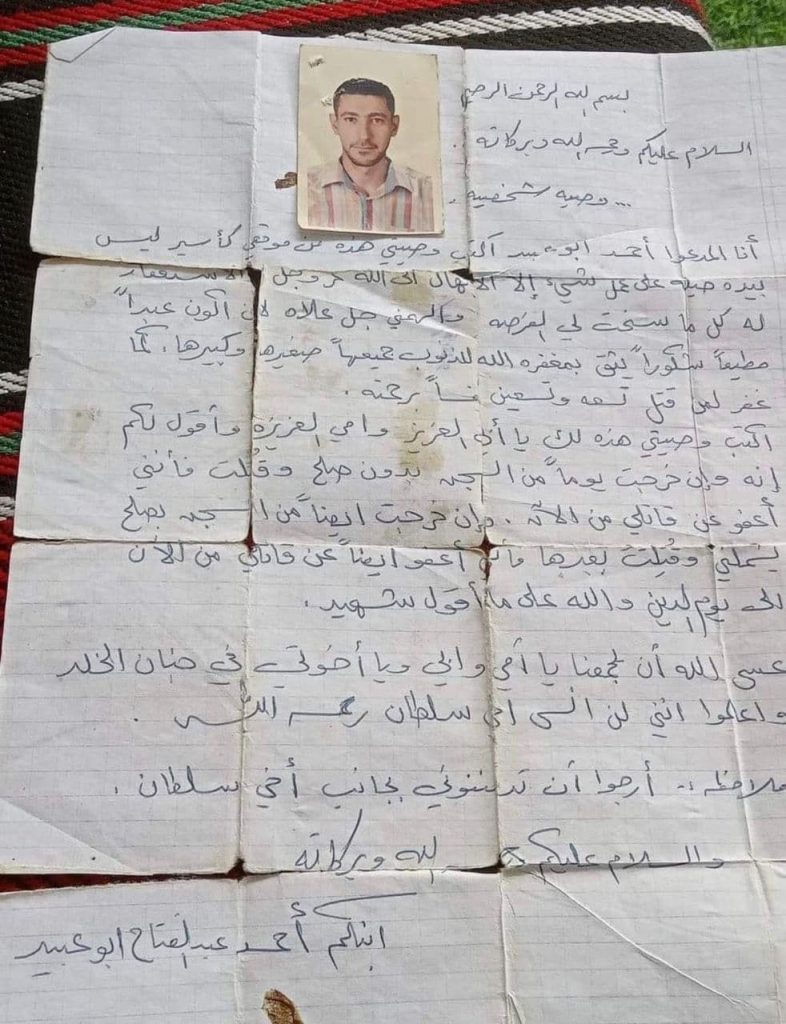 بسم الله الرحمن الرحيم
السلام عليكم ورحمة الله وبركاته .
... وصيه شخصيه .
أنا المدعوا أحمد ابو عبيد اكتب وصيتي هذه من موقعي كأسير ليس
بيده حيله على عمل شيء إلا الابتهال الى الله عز وجل والاستغفار
له كل ما سنحت لي الفرصه وألهمني جل علاه لان أكون عبداً
مطيعاً شكوراً يثق بمغفره الله للذنوب جميعهاً صغيرها وكبيرها، كما
غفر لمن قتل تسعه وتسعين نفساً برحمته .
اكتب وصيتي هذه لك يا أبي العزيز وامي العزيزه وأقول لكم
إنه وإن خرجت يوماً من السجن بدون صلح وقُتلت فأنني
أعفو عن قاتلي من الآن . وإن خرجت ايضاً من السجن بصلح
يشملني وقُتلت بعدها فأنني أعفو ايضاً عن قاتلي من الآن
الى يوم الدين والله على ما أقول شهيد .
عسى الله أن يجمعنا يا أمي وابي ويا أخوتي في جنان الخلد
واعلموا انني لن انسى اخي سلطان رحمه الله .
ملاحظه :. أرجوا أن تدفنوني بجانب أخي سلطان .
والسلام عليكم و الله وبركاته
ابنكم أحمد عبد الفتاح ابو عبيد